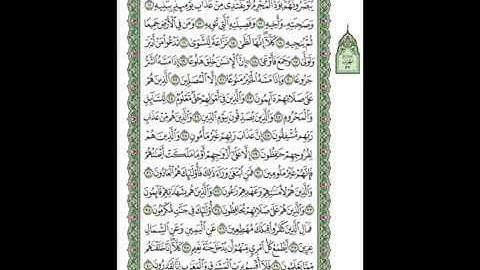 يُبَصَّرُونَهُمْ يَوَدُّ الْمُجْرِمُ لَوْ يَفْتَدِي مِنْ عَذَابِ يَوْمِئِذٍ بِبَنِيهِ ١١
وَصَاحِبَتِهِ وَأَخِيهِ ١٢ وَفَصِيلَتِهِ الَّتِي تُؤْوِيهِ ١٣ وَمَنْ فِي الْأَرْضِ جَمِيعًا
ثُمَّ يُنْجِيهِ ١٤ كَلَّا إِنَّهَا لَظَى ١٥ نَزَّاعَةً لِلشَّوَى ١٦ تَدْعُو مَنْ أَدْبَرَ
وَتَوَلَّى ١٧ وَجَمَعَ فَأَوْعَى ١٨ إِنَّ الْإِنْسَانَ خُلِقَ هَلُوعًا ١٩ إِذَا مَسَّهُ الشَّرُّ
جَزُوعًا ٢٠ وَإِذَا مَسَّهُ الْخَيْرُ مَنُوعًا ٢١ إِلَّا الْمُصَلِّينَ ٢٢ الَّذِينَ هُمْ
عَلَى صَلَاتِهِمْ دَائِمُونَ ٢٣ وَالَّذِينَ فِي أَمْوَالِهِمْ حَقٌّ مَعْلُومٌ ٢٤ لِلسَّائِلِ
وَالْمَحْرُومِ ٢٥ وَالَّذِينَ يُصَدِّقُونَ بِيَوْمِ الدِّينِ ٢٦ وَالَّذِينَ هُمْ مِنْ عَذَابِ
رَبِّهِمْ مُشْفِقُونَ ٢٧ إِنَّ عَذَابَ رَبِّهِمْ غَيْرُ مَأْمُونٍ ٢٨ وَالَّذِينَ هُمْ
لِفُرُوجِهِمْ حَافِظُونَ ٢٩ إِلَّا عَلَى أَزْوَاجِهِمْ أَوْ مَا مَلَكَتْ أَيْمَانُهُمْ
فَإِنَّهُمْ غَيْرُ مَلُومِينَ ٣٠ فَمَنِ ابْتَغَى وَرَاءَ ذَلِكَ فَأُولَئِكَ هُمُ الْعَادُونَ ٣١
وَالَّذِينَ هُمْ لِأَمَانَاتِهِمْ وَعَهْدِهِمْ رَاعُونَ ٣٢ وَالَّذِينَ هُمْ بِشَهَادَاتِهِمْ قَائِمُونَ
٣٣ وَالَّذِينَ هُمْ عَلَى صَلَاتِهِمْ يُحَافِظُونَ ٣٤ أُولَئِكَ فِي جَنَّاتٍ مُكْرَمُونَ ٣٥
فَمَالِ الَّذِينَ كَفَرُوا قِبَلَكَ مُهْطِعِينَ ٣٦ عَنِ الْيَمِينِ وَعَنِ الشِّمَالِ
عِزِينَ ٣٧ أَيَطْمَعُ كُلُّ امْرِئٍ مِنْهُمْ أَنْ يُدْخَلَ جَنَّةَ نَعِيمٍ ٣٨ كَلَّا إِنَّا خَلَقْنَاهُمْ
مِمَّا يَعْلَمُونَ ٣٩ فَلَا أُقْسِمُ بِرَبِّ الْمَشَارِقِ وَالْمَغَارِبِ إِنَّا لَقَادِرُونَ ٤٠